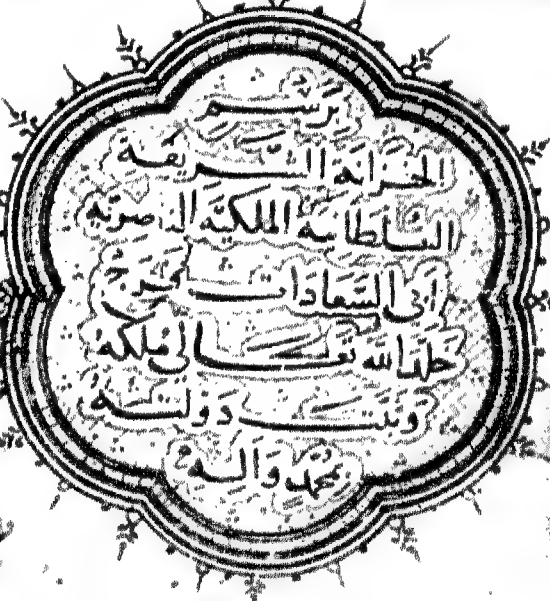 برسم
الخزانة الشريفة
السلطانية الملكية الناصرية
أبي السعادات محمد بن
خلد الله تعالى ملكه
وثبت دولته
بمحمد وآله